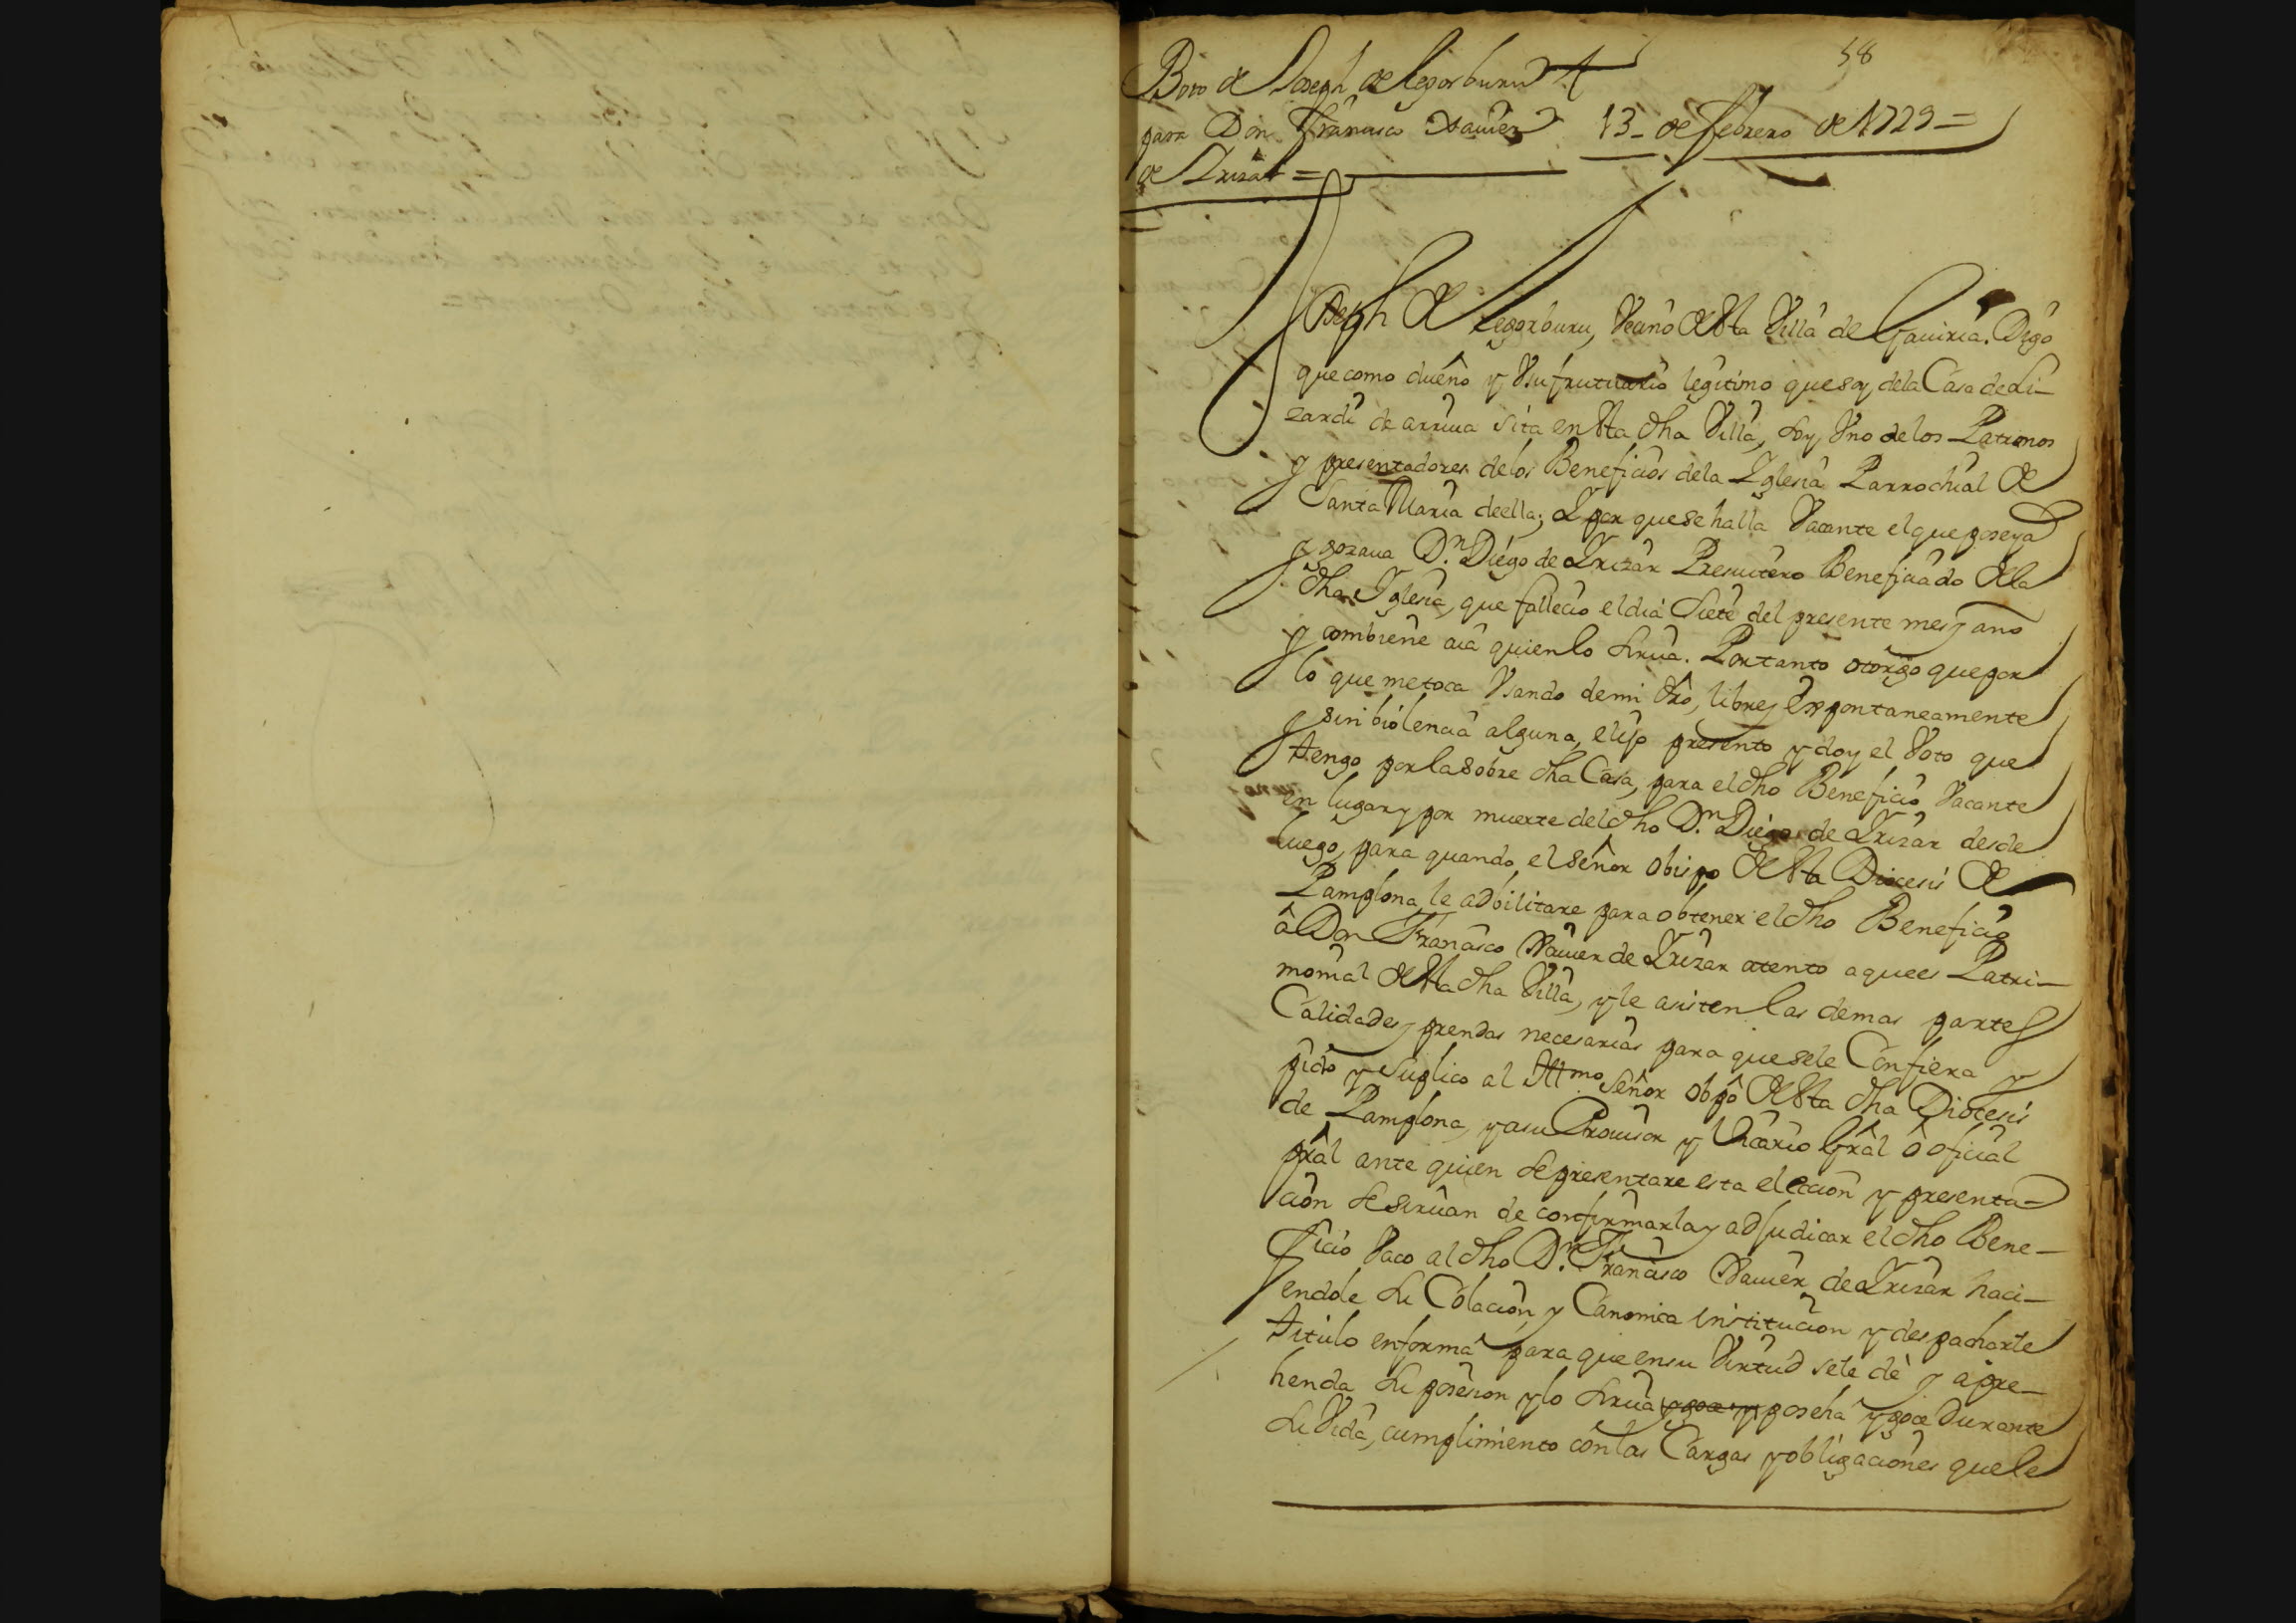 58
Boto de Joseph de Legorburu
para Don Françisco Xauier
de Yrizar =
13– de febrero de 1729=
Joseph de Legorburu, Veçino desta Villa de Gauiria. Digo
que como dueño y Vsufrutuario legitimo que soy, dela Casa de Li–
zardi de arriua sita en esta dha Villa, soy Vno delos Patronos
y presentadores delos Benefiçios dela Yglesia Parrochial de
Santa Maria de ella; Y por que se halla Vacante el que poseya
y gozaua Dn. Diego de Yrizar Presuitero Benefiçiado de la
dha Yglesia, que falleçio el dia siete del presente mes y año
y combiene aia quien lo sirua. Por tanto otorgo que por
lo que me toca Vsando de mi dro, libre y Expontaneamente
y sin biolençia alguna, elijo presento y doy el Voto que
tengo por la sobre dha Casa, para el dho Benefiçio Vacante
en lugar y por muerte del dho Dn. Diego de Yrizar desde
luego, para quando, el señor Obispo desta Dioçesis de
Pamplona le adbilitare para obtener el dho Benefiçio
â Don Françisco Xauier de Yrizar atento a que es Patri–
monial desta dha Villa, y le asisten las demas partes
Calidades y prendas neçesarias para que sele Confiera y
pido y suplico al Illmo señor Obpô desta dha Dioçesis
de Pamplona, y a su Prouisor y Vicario Grâl ô ofiçial
prâl ante quien se presentare esta elecçion y presenta–
çion se siruan de confirmarla y adjudicar el dho Bene–
fiçio Vaco al dho Dn. Françisco Xauier de Yrizar haçi–
endole su Colaçion, y Canonica institucion y despacharle
titulo en forma para que en su Virtud sele dè y apre–
henda su posesion y lo sirua y goçe y poseha y goçe durante
su Vida, cumplimiento con las Cargas y obligaçiones que le